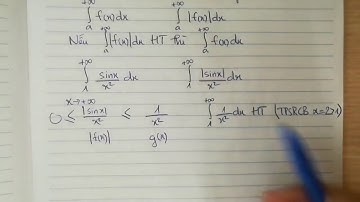 ∫_a^{+∞} f(x)dx    ∫_a^{+∞} |f(x)|dx
Nếu ∫_a^{+∞} |f(x)|dx HT thì ∫_a^{+∞} f(x)dx
∫_1^{+∞} sinx/x² dx    ∫_1^{+∞} |sinx|/x² dx
x→+∞
0 ≤ |sinx|/x² ≤ 1/x²    ∫_1^{+∞} 1/x² dx HT (TPSRCB α=2>1)
|f(x)|    g(x)